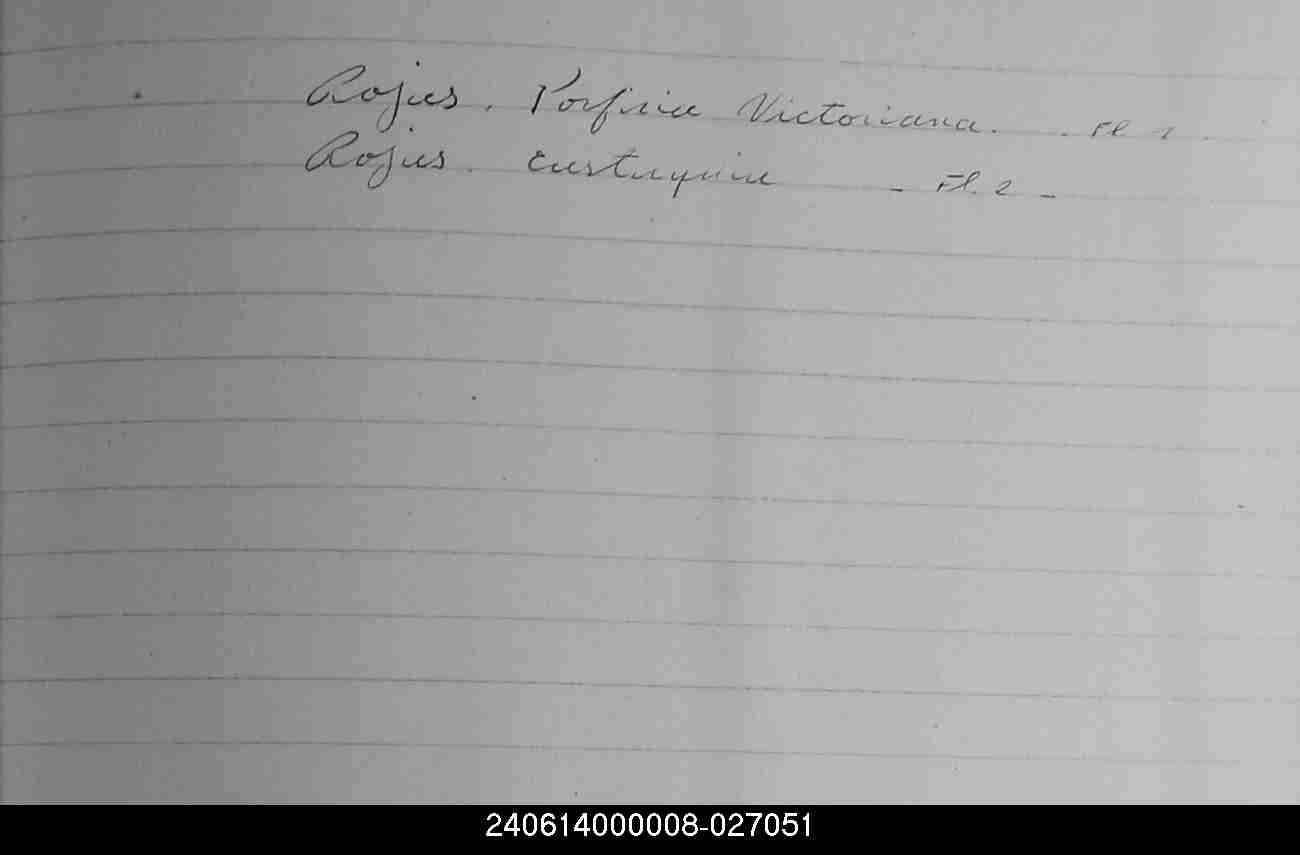 Rojas. Porfiria Victoriana. - Fl 2 -
Rojas. Eustaquia - Fl. 2 -
240614000008-027051